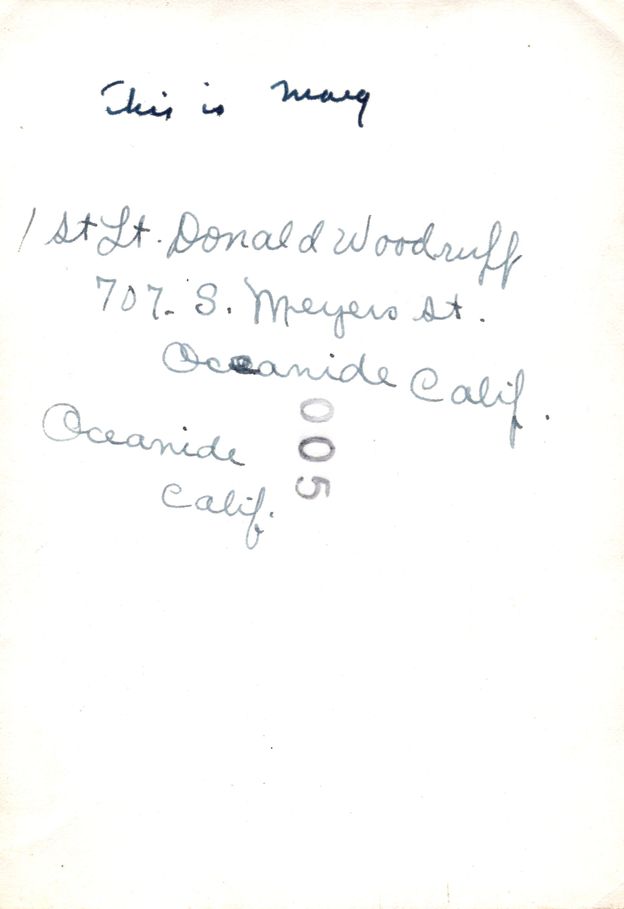 This is Marg
1 st Lt. Donald Woodruff
707. S. Meyers St.
Oceanide Calif.
Oceanide
Calif.
005